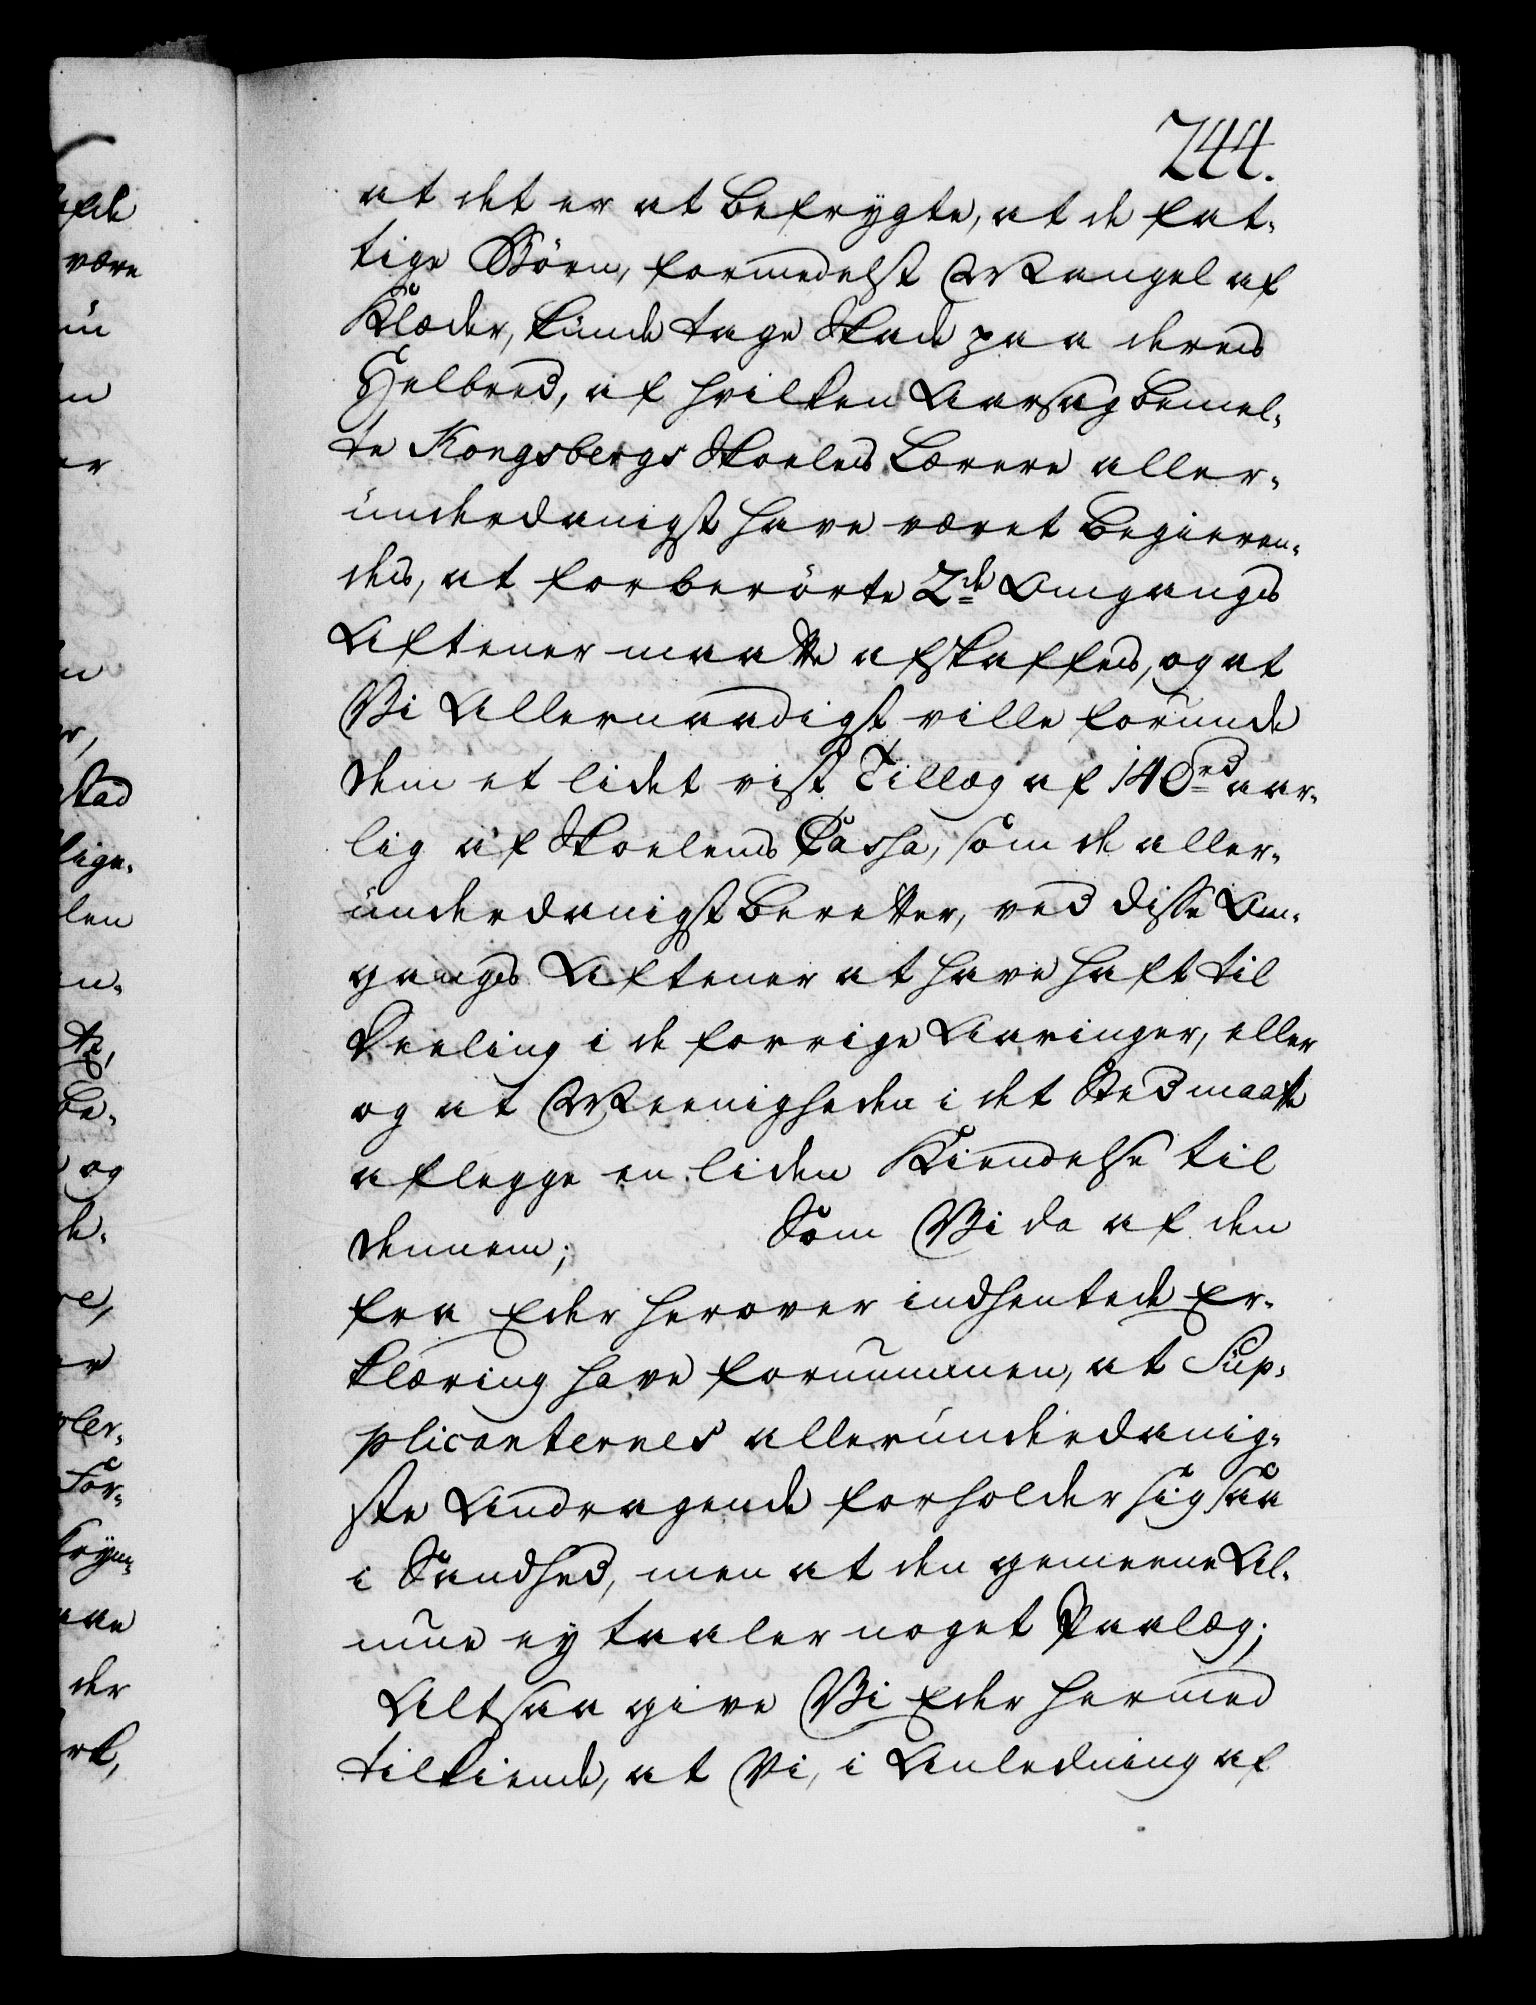 244.
at det er at befrygte, at de fat-
tige Börn, formedelst Mangel af
Klæder, kunde tage Skade paa deres
Helbred, af hvilken Aarsag bemel-
te Kongsbergs Skoeles Lærere aller-
underdanigst have været begieren-
des, at forberörte 2de Omgangs
Aftener maatte afskaffes, og at
Vi Allernaadigst ville forunde
dem et lidet vist Tillæg af 140 rd aar-
lig af Skoelens Cassa, som de aller-
underdanigst beretter, ved disse Om-
gangs Aftener at have haft til
Deeling i de forrige Aaringer, eller
og at Meenigheden i det Sted maatte
aflegge en liden Kiendelse til
dennem; Som Vi da af den
fra Eder herover indhentede Er-
klæring have fornummen, at Sup-
plicanternes allerunderdanig-
ste Andragende forholder sig saa
i Sandhed, men at den gemeene Al-
mue ey taaler noget Paalæg;
Altsaa give Vi Eder hermed
tilkiende, at Vi, i Anledning af